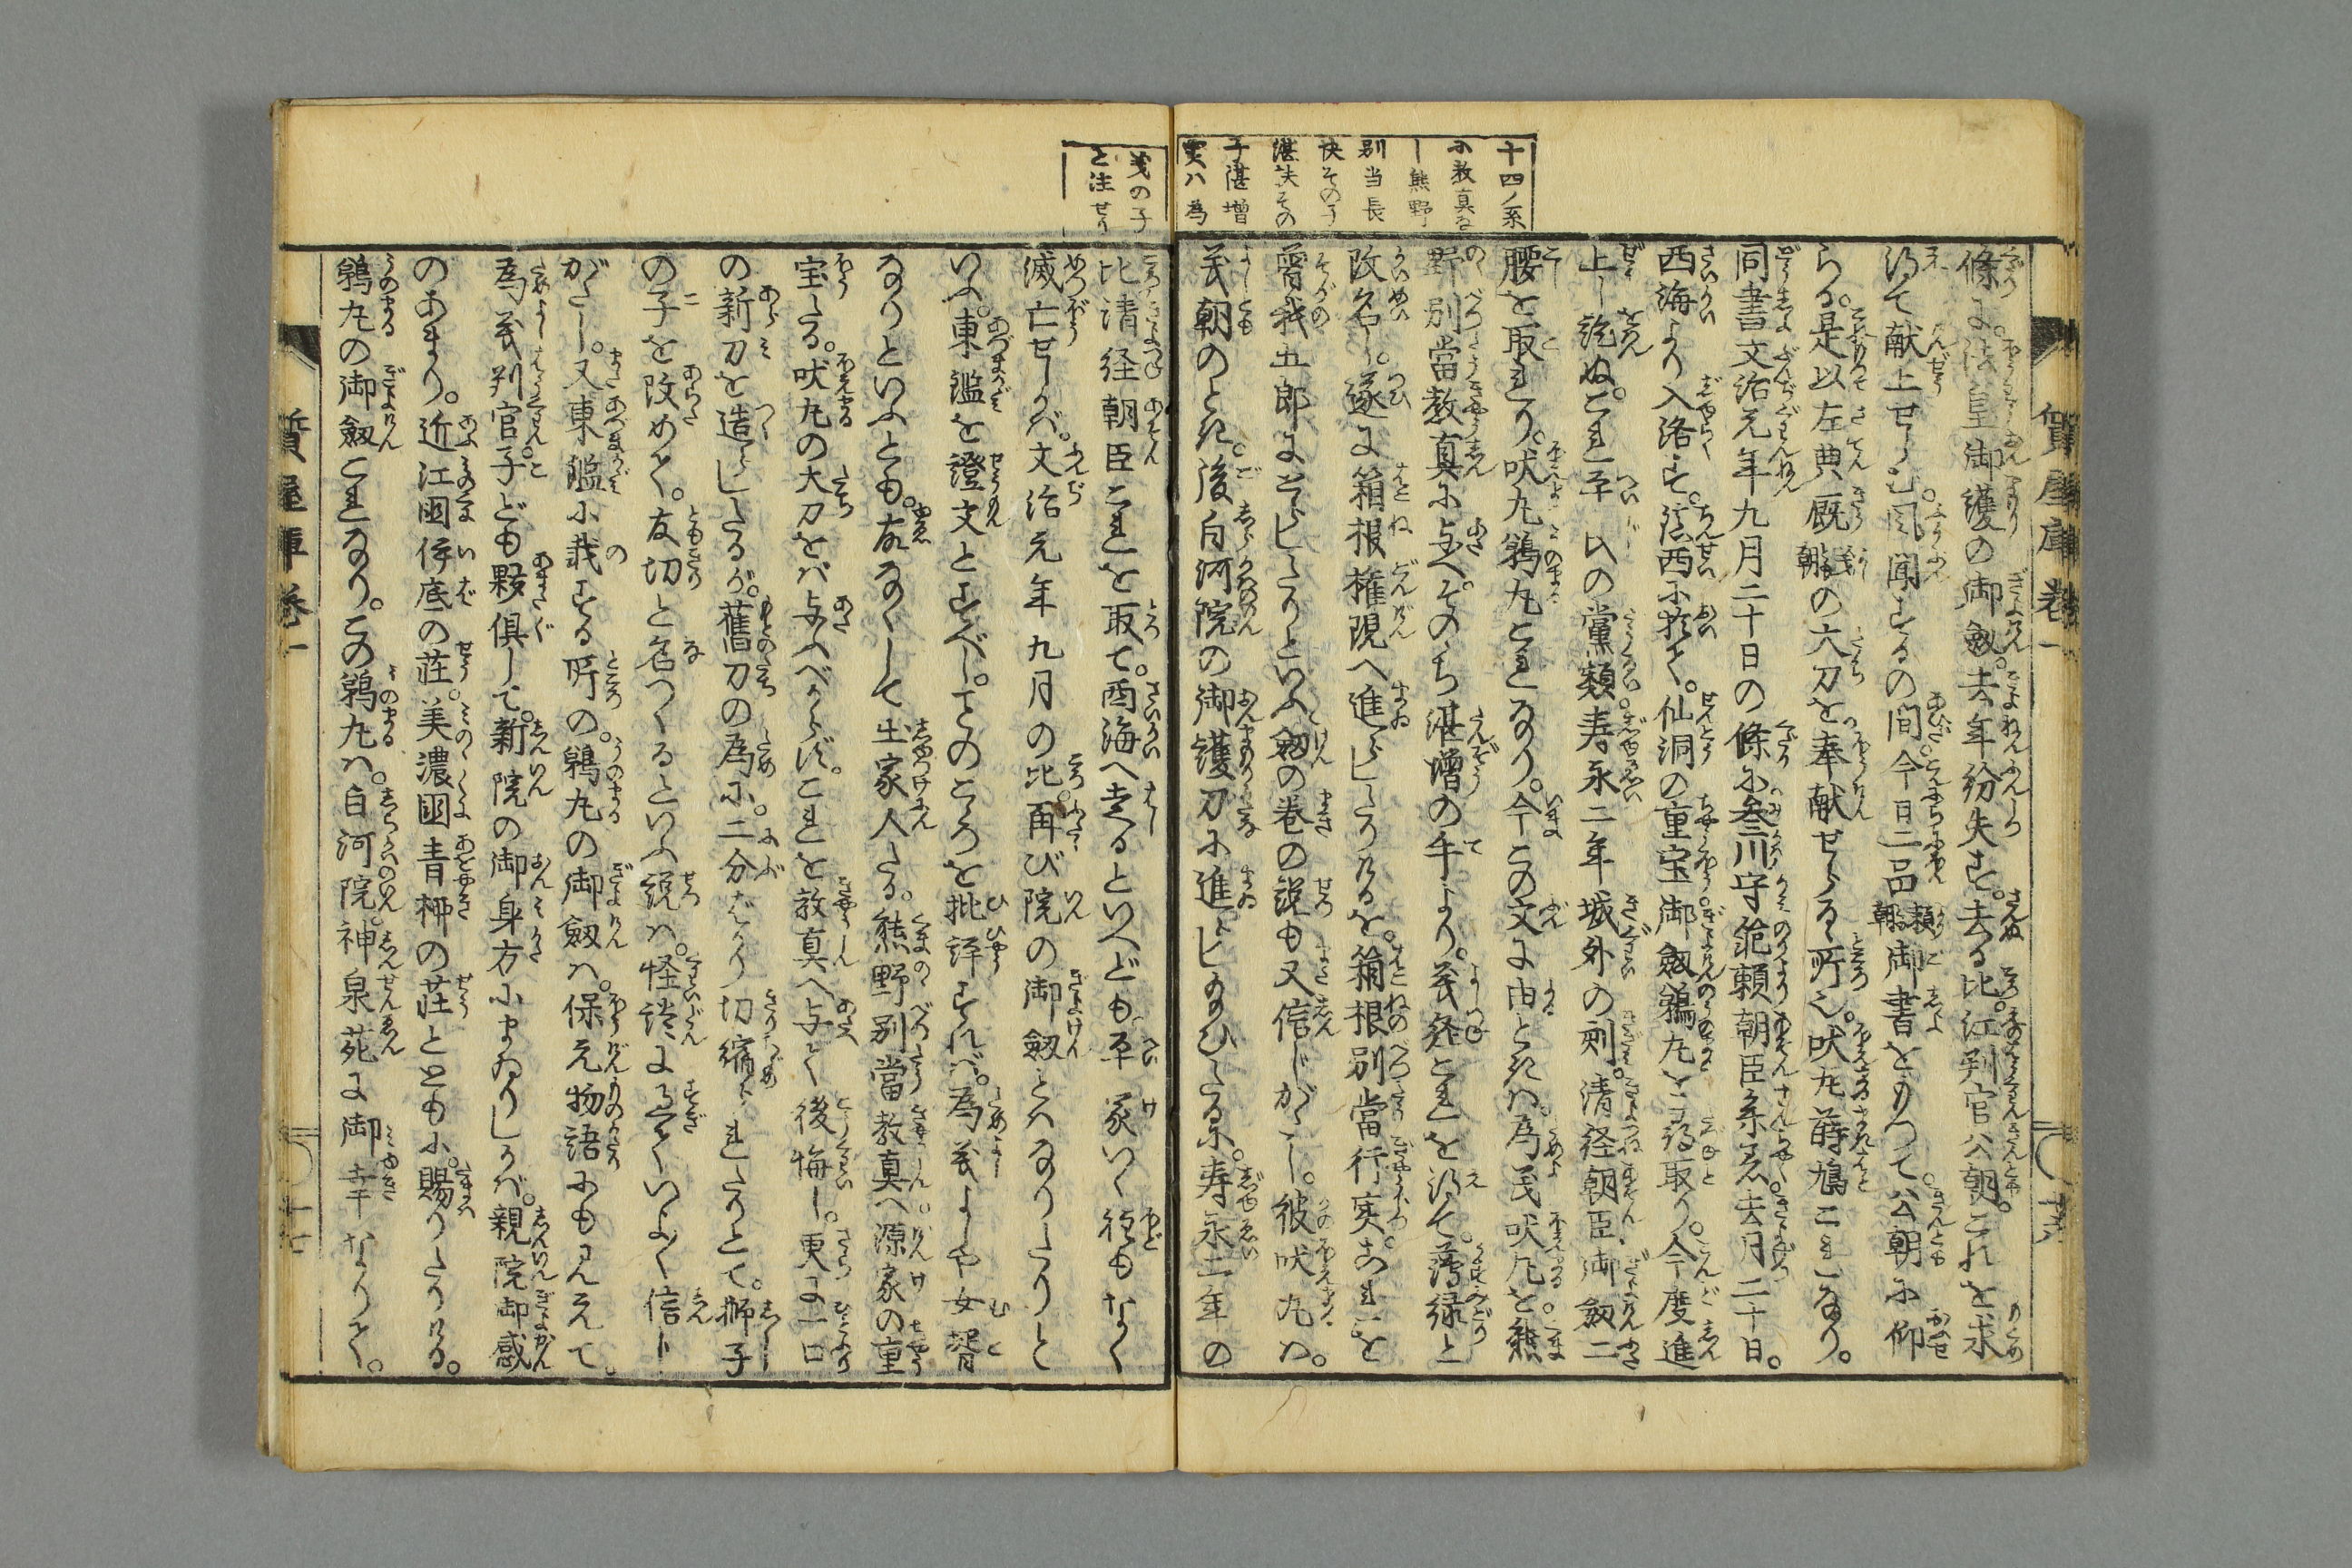 質屋庫巻一 ○十六
十四ノ系
に教真な
し熊野
別当長
快その子
湛快その
子湛増
実ハ為
條に。法皇御護の御劔。去年紛失す。去る比。江判官公朝。これを求
得て献上せしむ。風聞するの間。今日二品頼朝御書をもつて。公朝に仰
らる。是以左典厩義朝の太刀を奉献せらる所也。吠丸蒔鳩これなり。
同書文治元年九月二十日の條に参川守範頼朝臣去月二十日。
西海より入洛す。鎮西に於て。仙洞の重宝御劔鵜丸を尋取り。今度進
上し訖ぬ。これ平氏の黨類。寿永二年城外の刻。清経朝臣御劔二
腰を取れり。吠丸鵜丸これなり。今この文に由ときハ。為義吠丸を熊
野別當教真に与へ。そのゝち湛増の手より。義経これを得て。薄緑と
改名し。遂に箱根権現へ進らしたりけるを。箱根別當行実。これを
曽我五郎にとらしたりといふ劔の巻の説も又信じがたし。彼吠丸ハ。
義朝のとき。後白河院の御護刀に進らし給ひたるに。寿永二年の
義の子
と注せり
比清経朝臣これを取て。西海へ走るといへども。平家いく程もなく
滅亡せしかバ。文治元年九月の比。再び院の御劔とハなりたりと
いふ。東鑑を證文とすべし。そのころを批評すれバ。為義よしや女聟
なりといふとも。故なくして出家人たる。熊野別當教真へ源家の重
宝たる。吠丸の太刀をバ与ふべからず。これを教真へ与て後悔し。更に一口
の新刀を造らしたるが。舊刀の為に。二分ばかり切縮られたりとて。獅子
の子を改めて。友切と名つくるといふ説ハ。怪談に過ていよゝ信じ
がたし。又東鑑に載する所の。鵜丸の御劔ハ。保元物語にも見えて。
為義判官子ども夥倶して。新院の御身方にまゐりしかバ。親院御感
のあまり。近江国伊庭の荘。美濃国青柳の荘とともに。賜りたりける。
鵜丸の御劔これなり。この鵜丸ハ。白河院神泉苑に御幸なりて。
質屋庫巻一 ○十七